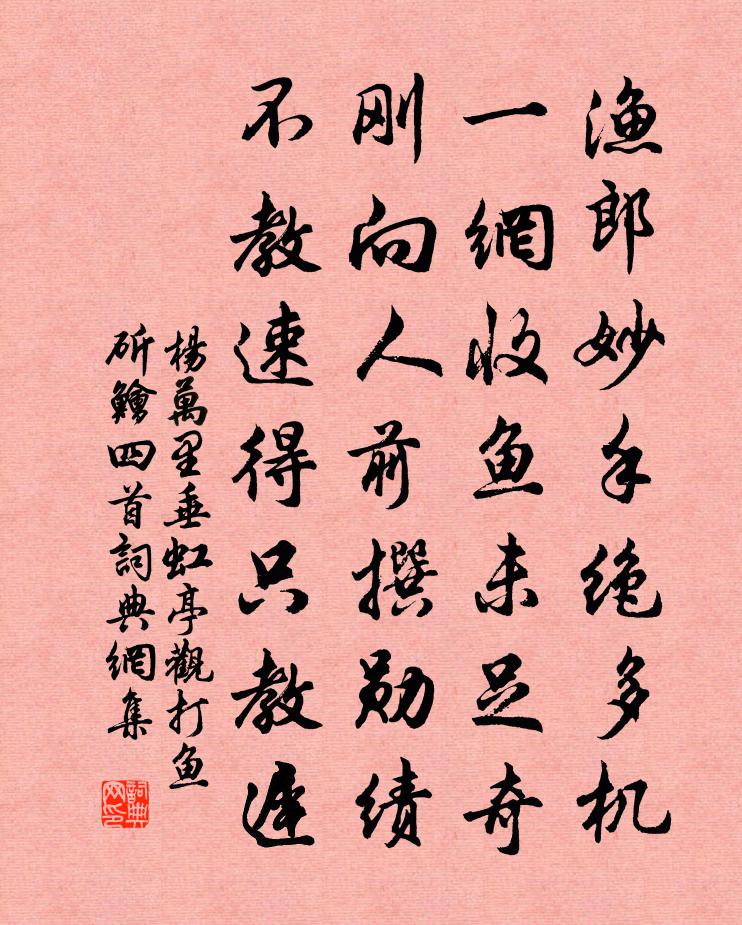 渔郎妙手绝多机
一網收鱼未足奇
刚向人前撰勋绩
不教速得只教遲
楊萬里垂虹亭觀打鱼
斫鱠四首詞典網集
詞典
网印